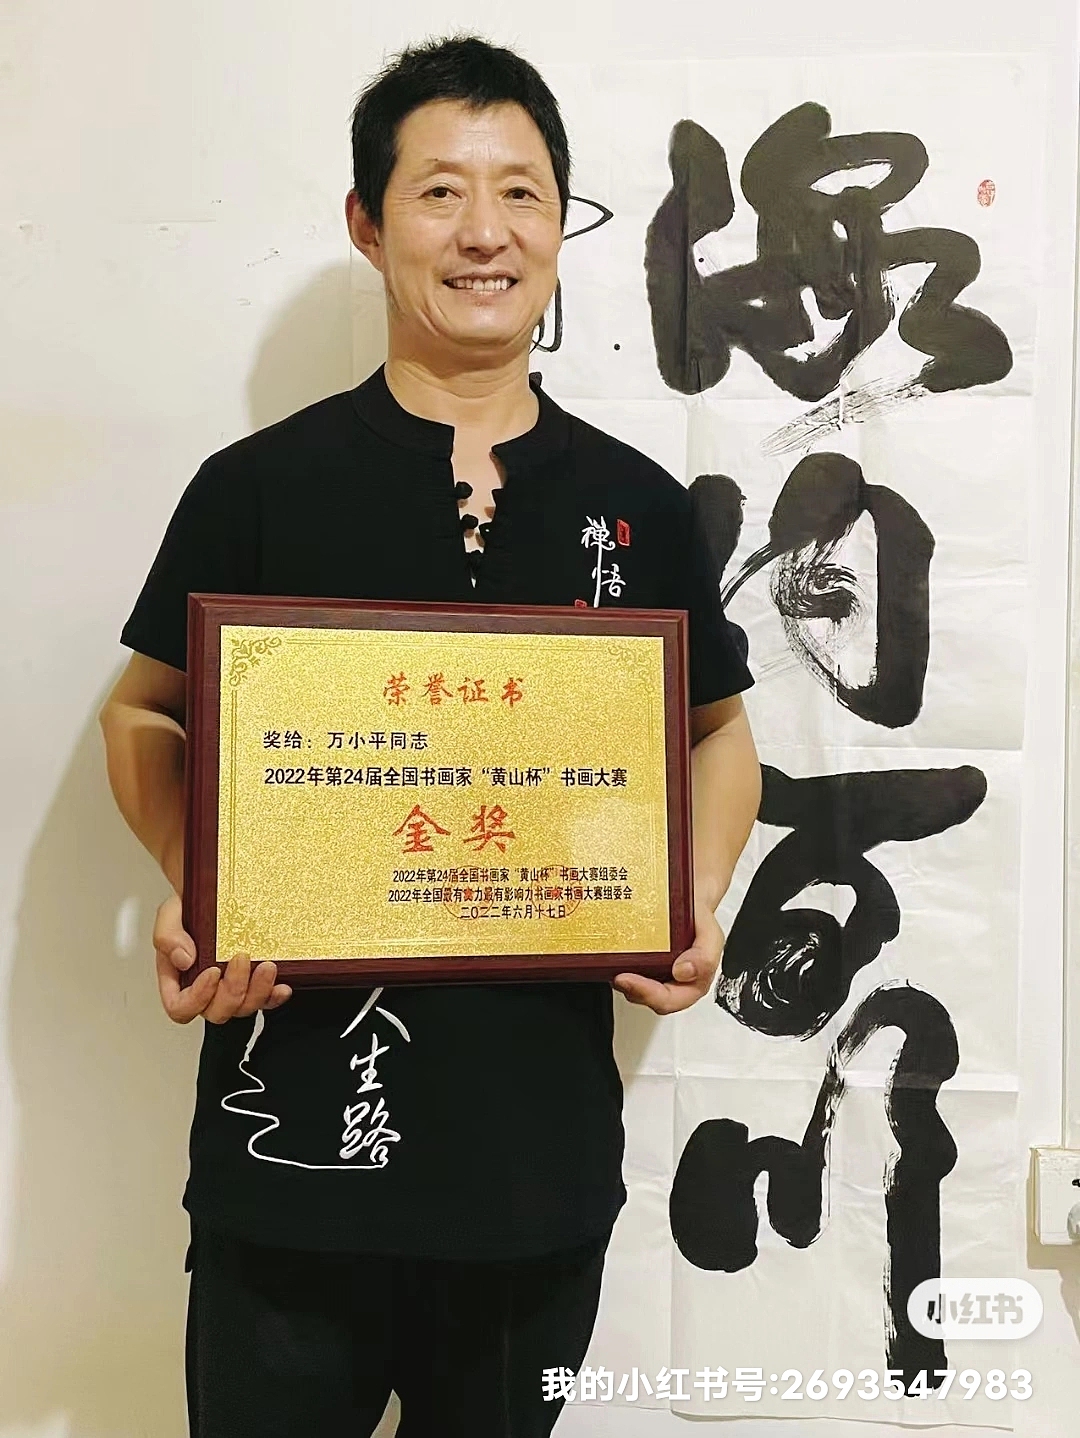 海纳百川
禪悟
荣誉证书
奖给：万小平同志
2022年第24届全国书画家“黄山杯”书画大赛
金奖
2022年第24届全国书画家“黄山杯”书画大赛组委会
2022年全国最有实力最有影响力书画家书画大赛组委会
二〇二二年六月十七日
人生路
小红书
我的小红书号:2693547983